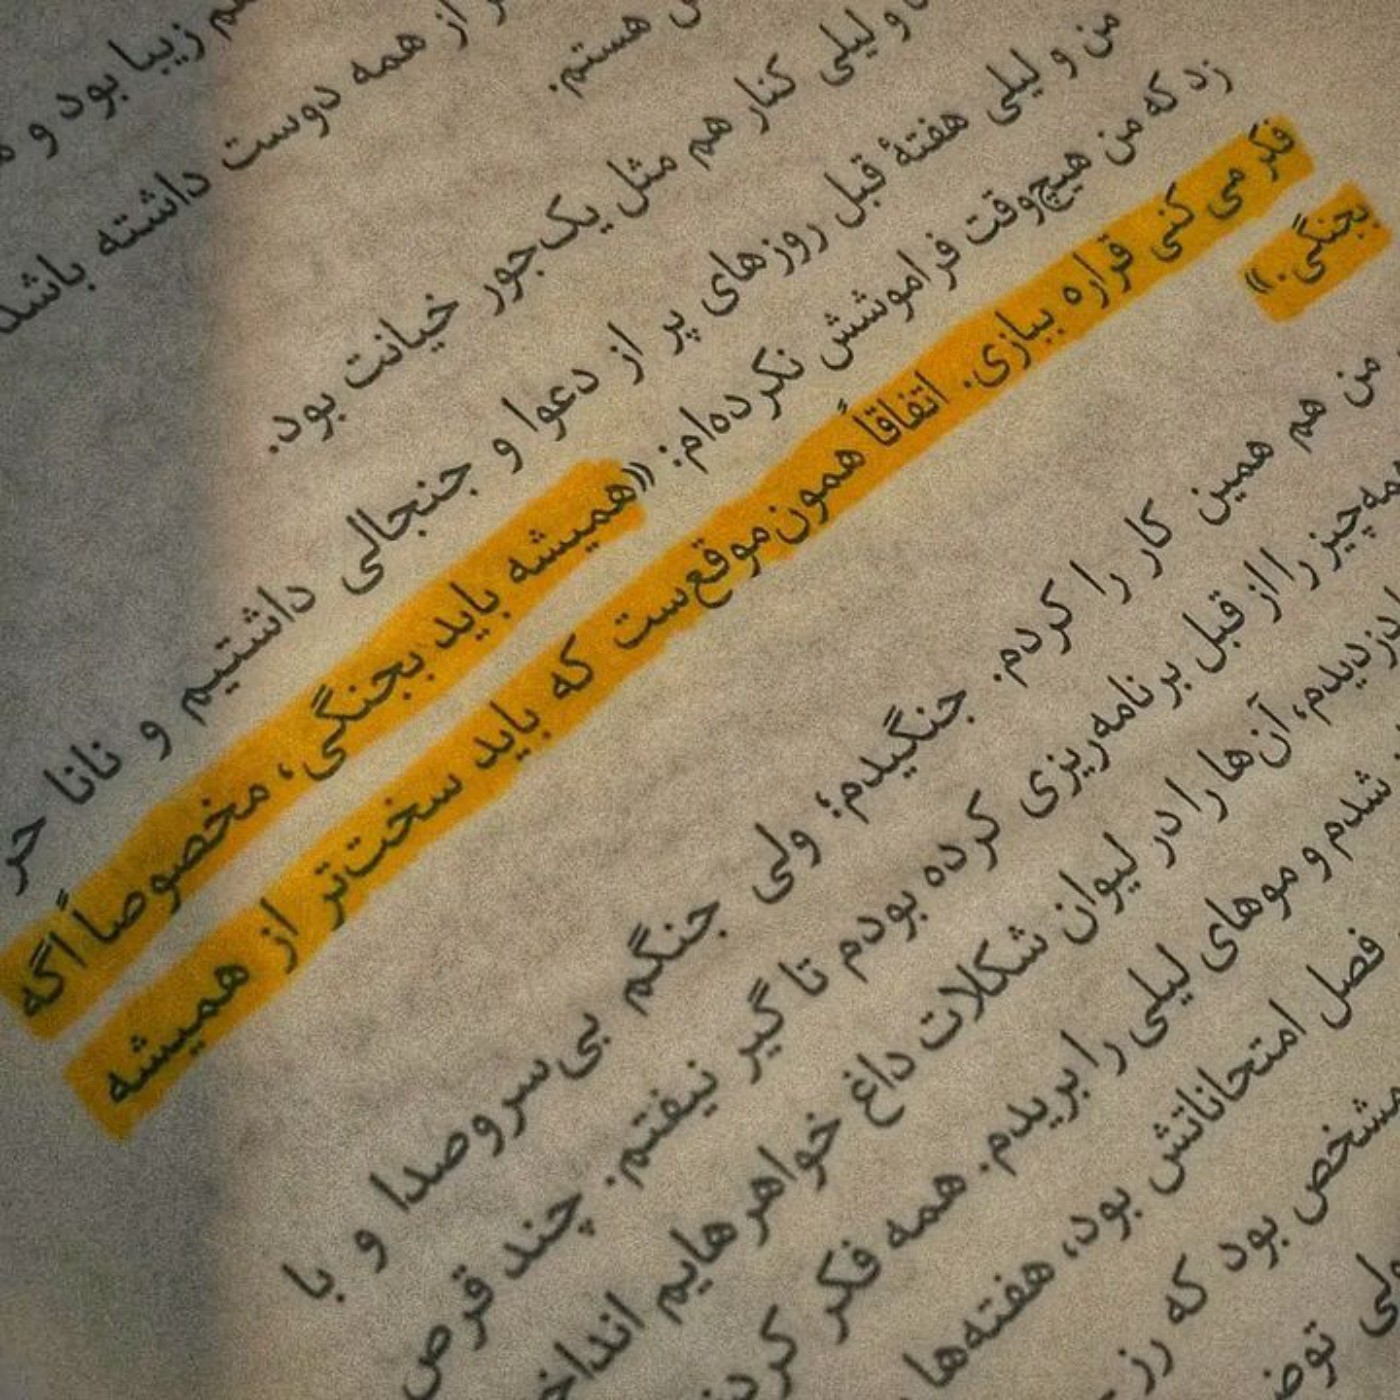 زیبا بود و
از همه دوست داشته باشد
هستم.
و لیلی کنار هم مثل یک‌جور خیانت بود.
من و لیلی هفتهٔ قبل روزهای پر از دعوا و جنجالی داشتیم و نانا حر
زد که من هیچ‌وقت فراموشش نکرده‌ام: «همیشه باید بجنگی، مخصوصاً اگه
فکر می کنی قراره ببازی. اتفاقاً همون‌موقع‌ست که باید سخت‌تر از همیشه
بجنگی.»
من هم همین کار را کردم. جنگیدم؛ ولی جنگم بی‌سروصدا و با
چیز را از قبل برنامه‌ریزی کرده بودم تا گیر نیفتم. چند قرص
دزدیدم، آن‌ها را در لیوان شکلات داغ خواهرهایم انداخ
شدم و موهای لیلی را بریدم. همه فکر کردن
فصل امتحاناتش بود، هفته‌ها
مشخص بود که رز